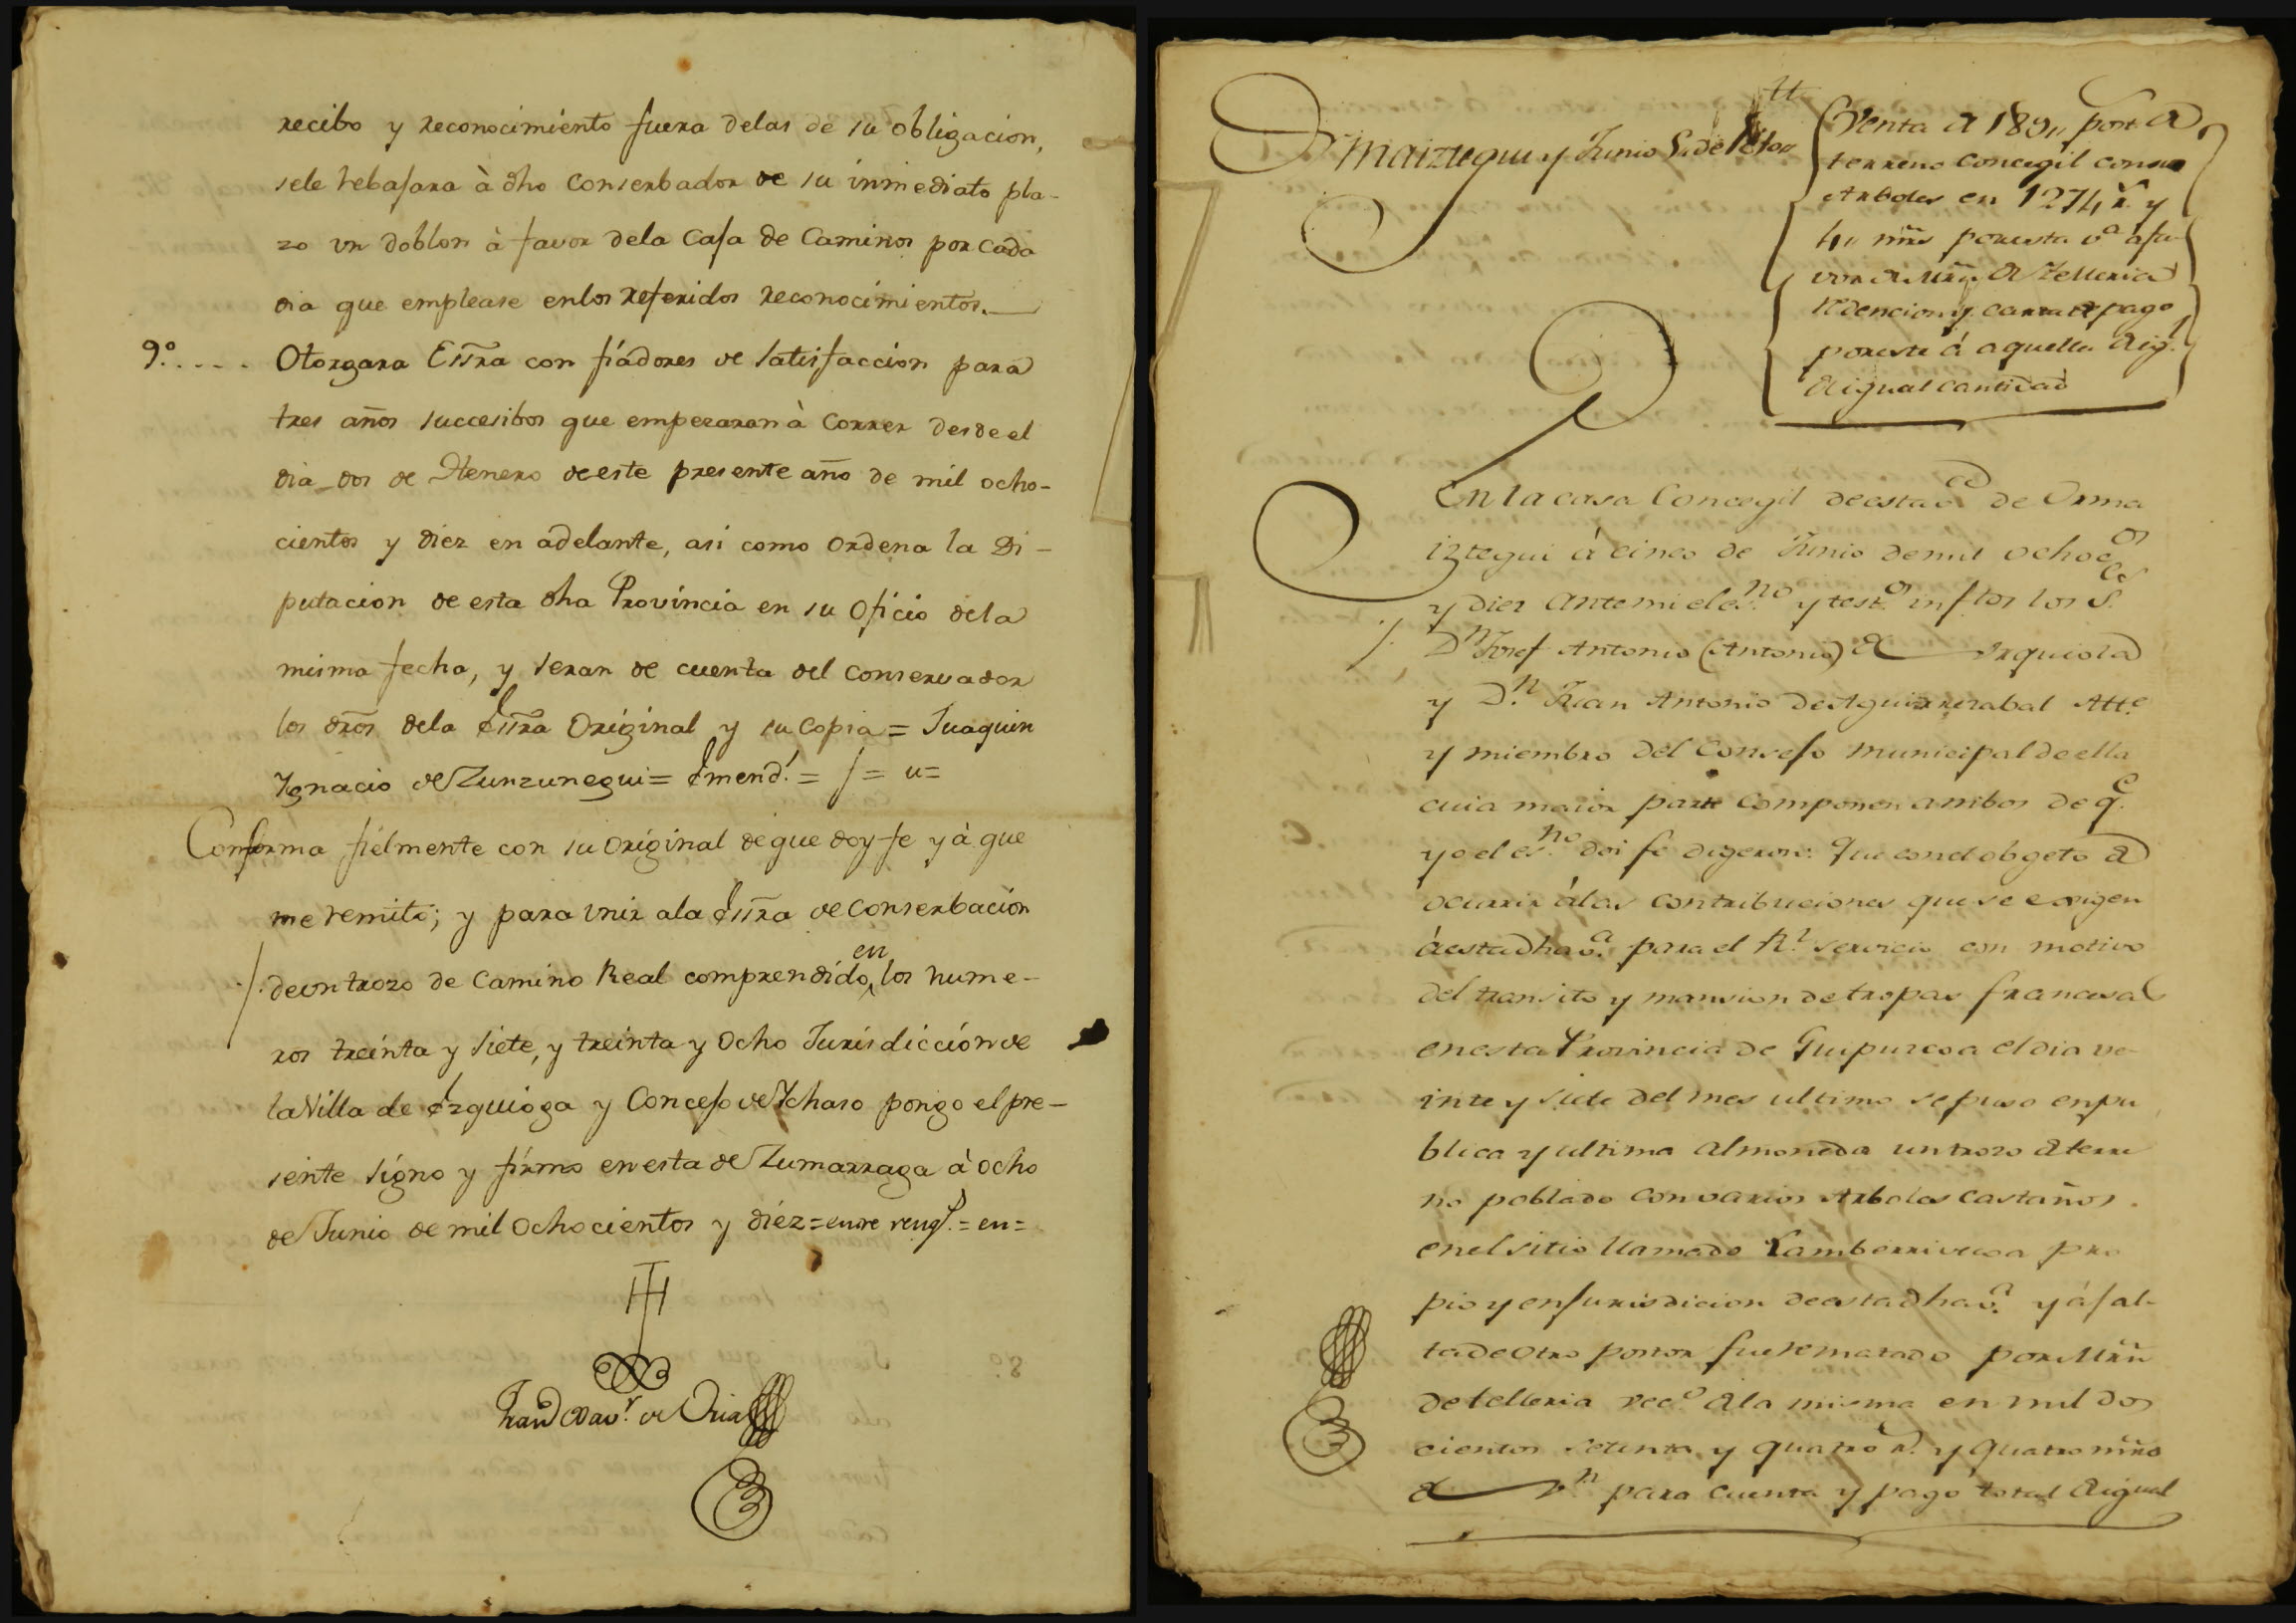 recibo y reconocimiento fuera delas de su obligacion,
sele rebajara à dho Conserbador de su inmediato pla-
zo vn doblon à favor dela Caja de Caminos por cada
dia que emplease enlos referidos reconocimientos.
9.º.... Otorgara Essra con fiadores de satisfaccion para
tres años succesibos que empezaran à Correr desde el
dia dos de Henero de este presente año de mil ocho-
cientos y diez en adelante, asi como Ordena la Di-
putacion de esta dha Provincia en su Oficio dela
misma fecha, y seran de cuenta del Conservador
los dros dela Essra Original y su Copia = Juaquin
Ygnacio de Zunzunegui = Emend.º = j = u =
Conforma fielmente con su Original de que doy fe y à que
me remito; y para vnir ala Essra de Conserbacion
de vn trozo de Camino Real comprendido en los nume-
ros treinta y siete, y treinta y ocho Jurisdiccion de
la Villa de Ezquioga y Concejo de Ycharo pongo el pre-
sente signo y firmo en esta de Zumarraga à ocho
de Junio de mil Ochocientos y diez = entre rengl.º = en =
Fran.co Xav.r de Oria
Ormaiztegui y Junio 5 de 1810
Venta de 189 post. de
terreno Concegil con sus
Arboles en 1274 r.s y
4 mrs por esta v.ª a fa-
vor de Mrn. de Telleria
Redencion y carta de pago
por este á aquella de ig.l
de igual cantidad
En la casa Concegil de esta v.ª de Orma
iztegui á cinco de Junio de mil ochoc.os
y diez ante mi el es.no y test.os inf tos los S.es
D.n Josef Antonio (Antonio) de Urquiola
y D.n Juan Antonio de Aguirrezabal Alt.e
y miembro del Consejo municipal de ella
cuia maior parte Componen ambos de q.e
yo el es.no doi fe digeron: Que con el obgeto de
ocurrir á las contribuciones que se exigen
á esta dha v.ª para el R.l servicio con motivo
del transito y mansion de tropas francesas
en esta Provincia de Guipuzcoa el dia ve-
inte y siete del mes ultimo se puso en pu
blica y ultima almoneda un trozo de terre
no poblado con varios Arboles Castaños
en el sitio llamado Lamberrivecoa pro
pio y en jurisdicion de esta dha v.ª y á fal-
ta de otro postor fue rematado por Mrn
de telleria vec.º de la misma en mil dos
cientos setenta y quatro r.s y quatro mrs
de v.n para cuenta y pago total de igual